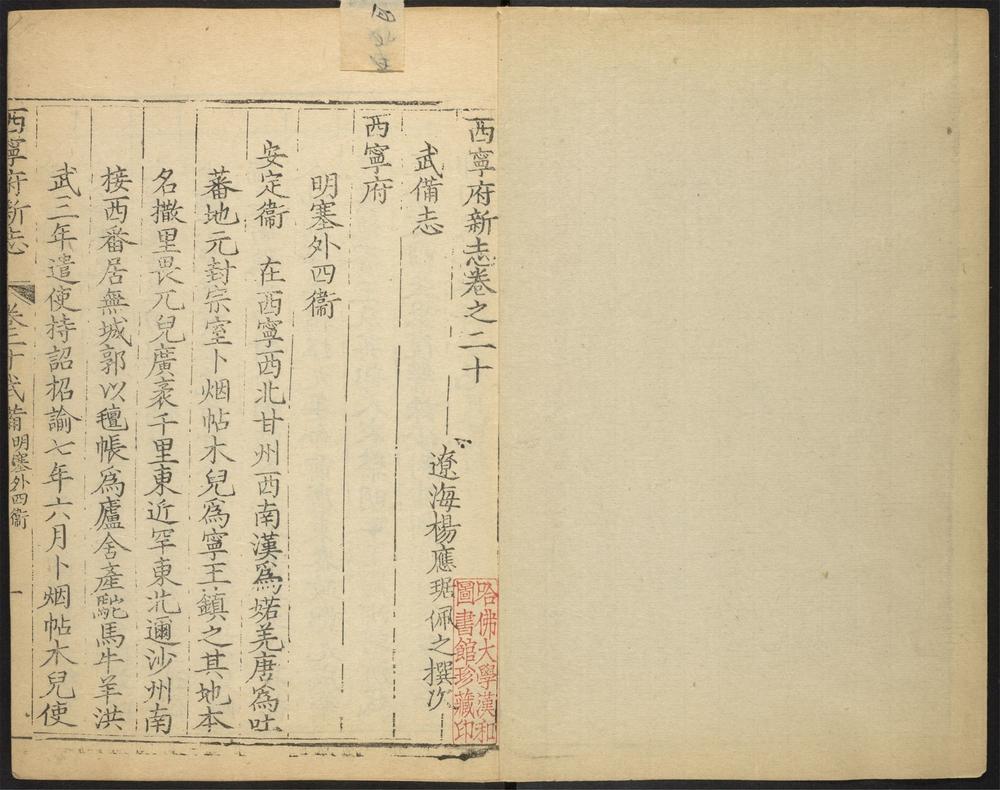 西寧府新志卷之二十
武備志
遼海楊應琚佩之撰次
西寧府
明塞外四衞
安定衞 在西寧西北甘州西南漢爲婼羌唐爲吐
蕃地元封宗室卜烟帖木兒爲寧王鎮之其地本
名撒里畏兀兒廣袤千里東近罕東北邇沙州南
接西番居無城郭以氊帳爲廬舍產駝馬牛羊洪
武三年遣使持詔招諭七年六月卜烟帖木兒使
西寧府新志
卷二十武備明塞外四衞
一
哈佛大學漢和
圖書館珍藏印